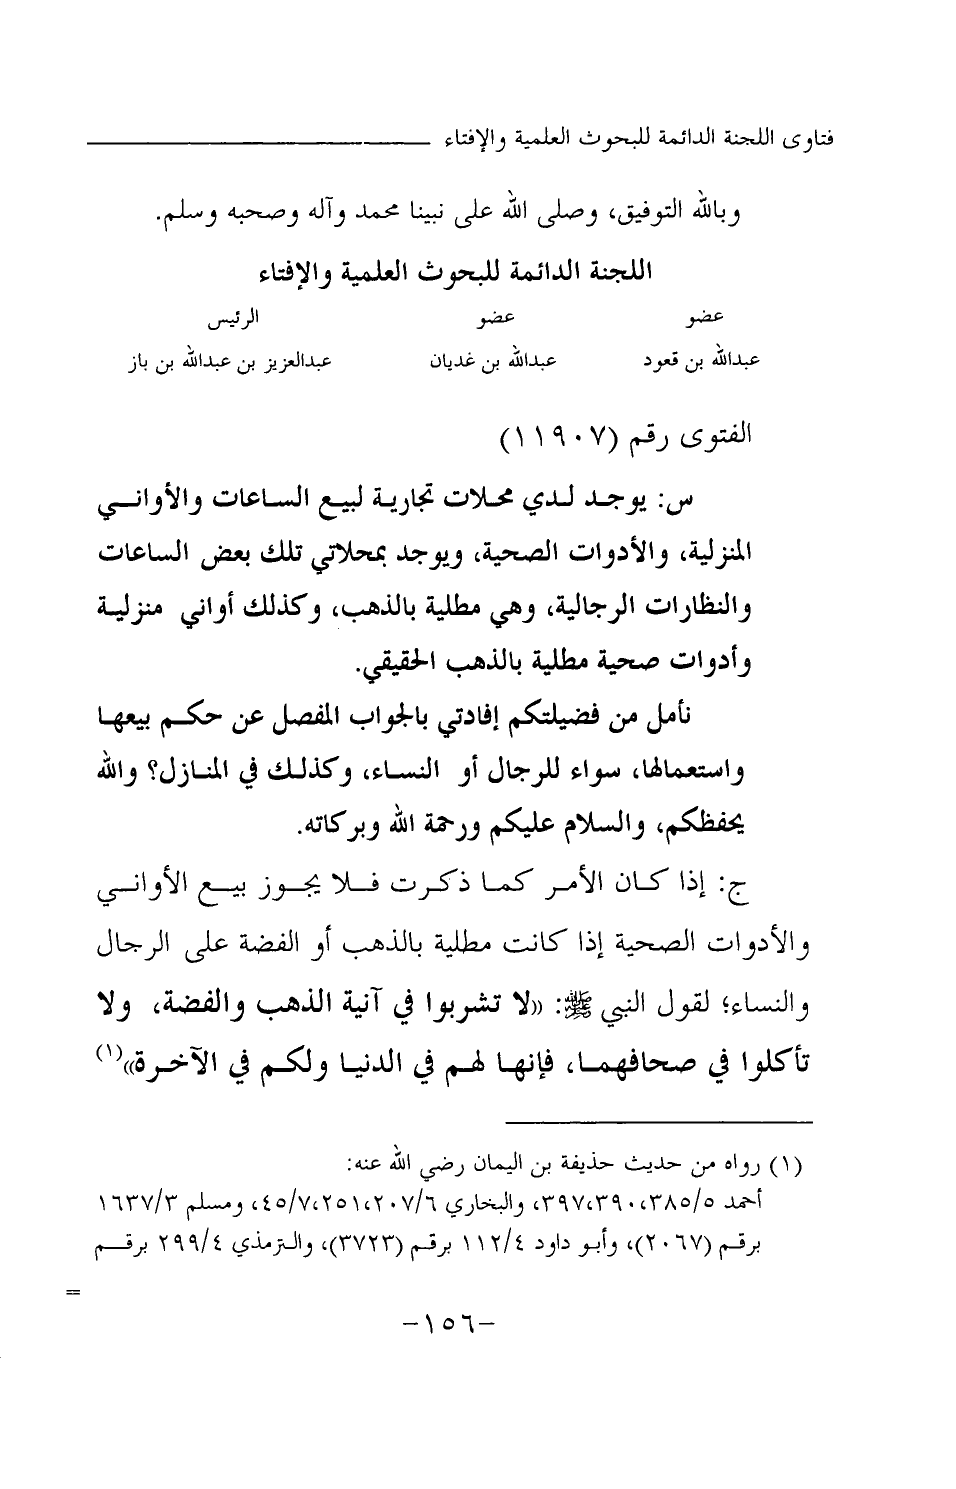 فتاوى اللجنة الدائمة للبحوث العلمية والإفتاء
وبالله التوفيق، وصلى الله على نبينا محمد وآله وصحبه وسلم.
اللجنة الدائمة للبحوث العلمية والإفتاء
عضو عضو الرئيس
عبدالله بن قعود عبدالله بن غديان عبدالعزيز بن عبدالله بن باز
الفتوى رقم (١١٩٠٧)
س: يوجد لدي محلات تجارية لبيع الساعات والأواني
المنزلية، والأدوات الصحية، ويوجد بمحلاتي تلك بعض الساعات
والنظارات الرجالية، وهي مطلية بالذهب، وكذلك أواني منزلية
وأدوات صحية مطلية بالذهب الحقيقي.
نأمل من فضيلتكم إفادتي بالجواب المفصل عن حكم بيعها
واستعمالها، سواء للرجال أو النساء، وكذلك في المنازل؟ والله
يحفظكم، والسلام عليكم ورحمة الله وبركاته.
ج: إذا كان الأمر كما ذكرت فلا يجوز بيع الأواني
والأدوات الصحية إذا كانت مطلية بالذهب أو الفضة على الرجال
والنساء؛ لقول النبي ﷺ: «لا تشربوا في آنية الذهب والفضة، ولا
تأكلوا في صحافهما، فإنها لهم في الدنيا ولكم في الآخرة»(١)
(١) رواه من حديث حذيفة بن اليمان رضي الله عنه:
أحمد ٣٨٥/٥، ٣٩٠، ٣٩٧، والبخاري ٢٠٧/٦، ٢٥١، ٤٥/٧، ومسلم ١٦٣٧/٣
برقم (٢٠٦٧)، وأبو داود ١١٢/٤ برقم (٣٧٢٣)، والترمذي ٢٩٩/٤ برقم
=
-١٥٦-